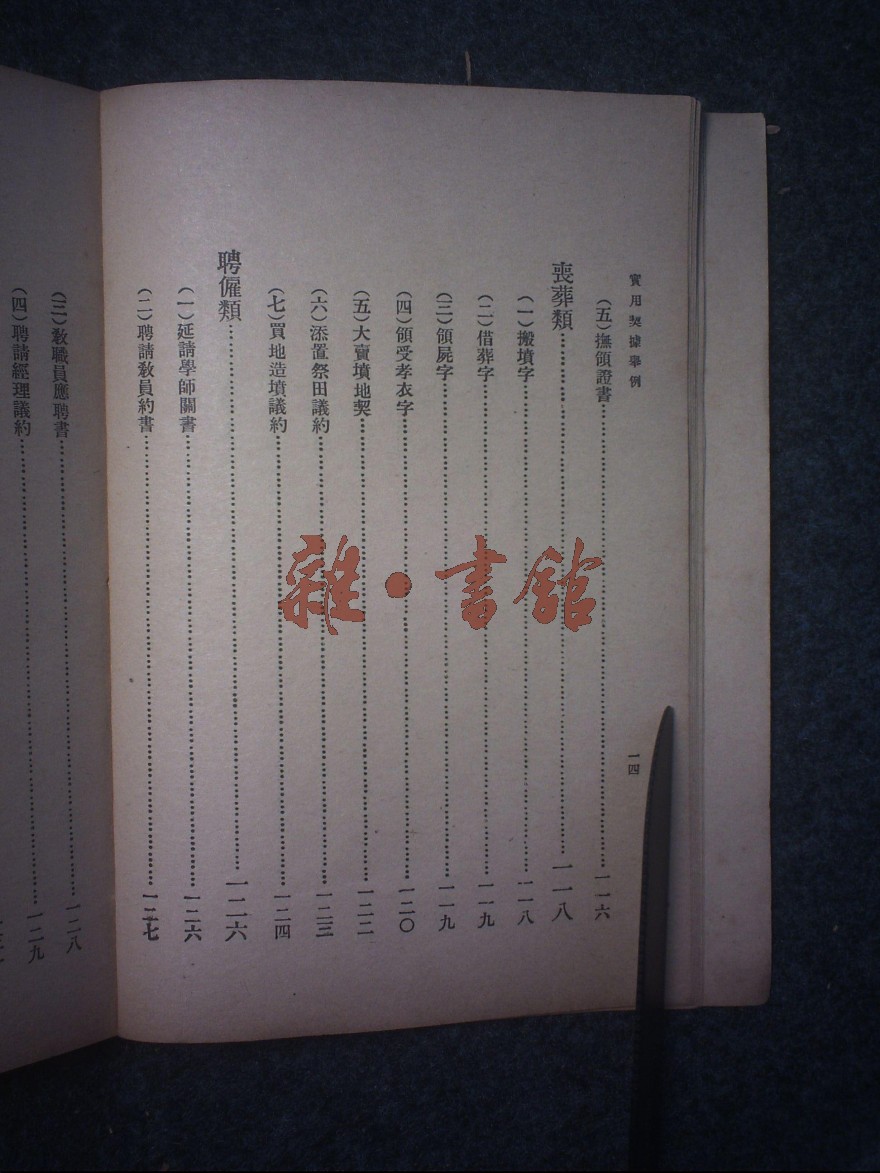 實用契據舉例
一四
（五）撫領證書…………一一六
喪葬類…………一一八
（一）搬墳字…………一一八
（二）借葬字…………一一九
（三）領屍字…………一一九
（四）領受孝衣字…………一二〇
（五）大賣墳地契…………一二二
（六）添置祭田議約…………一二三
（七）買地造墳議約…………一二四
聘僱類…………一二六
（一）延請學師關書…………一二六
（二）聘請教員約書…………一二七
（三）教職員應聘書…………一二八
（四）聘請經理議約…………一二九
雜·書館